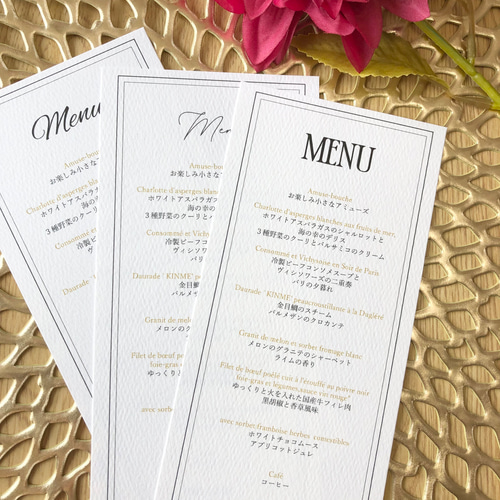 Menu
Amuse-bouche
お楽しみ小さな
Charlotte d'asperges blanches
ホワイトアスパラガス
海の幸の
3種野菜のクーリと
Consommé et Vichy
冷製ビーフコン
ヴィシソワーズ
パリの夕
Daurade ' KINME'
金目鯛
パルメザン
Granit de
メロンの
Filet de bœuf
foie-gras
ゆっくりと火
avec sorbet
MENU
Amuse-bouche
お楽しみ小さなアミューズ
Charlotte d'asperges blanches aux fruits de mer,
ホワイトアスパラガスのシャルロットと
海の幸のデリス
3種野菜のクーリとバルサミコのクリーム
Consommé et Vichysoise en Soit de Paris
冷製ビーフコンソメスープと
ヴィシソワーズの二重奏
パリの夕暮れ
Daurade ' KINME'
à la Dugléré
金目鯛のスチーム
パルメザンのクロカンテ
Granit de melon et sorbet fromage blanc
メロンのグラニテのシャーベット
ライムの香り
Filet de bœuf poêlé cuit à l'étouffe au poivre noir
foie-gras et légumes,sauce vin rouge'
ゆっくりと火を入れた国産牛フィレ肉
黒胡椒と香草風味
avec sorbet,framboise herbes comestibles
ホワイトチョコムース
アプリコットジュレ
Café
コーヒー